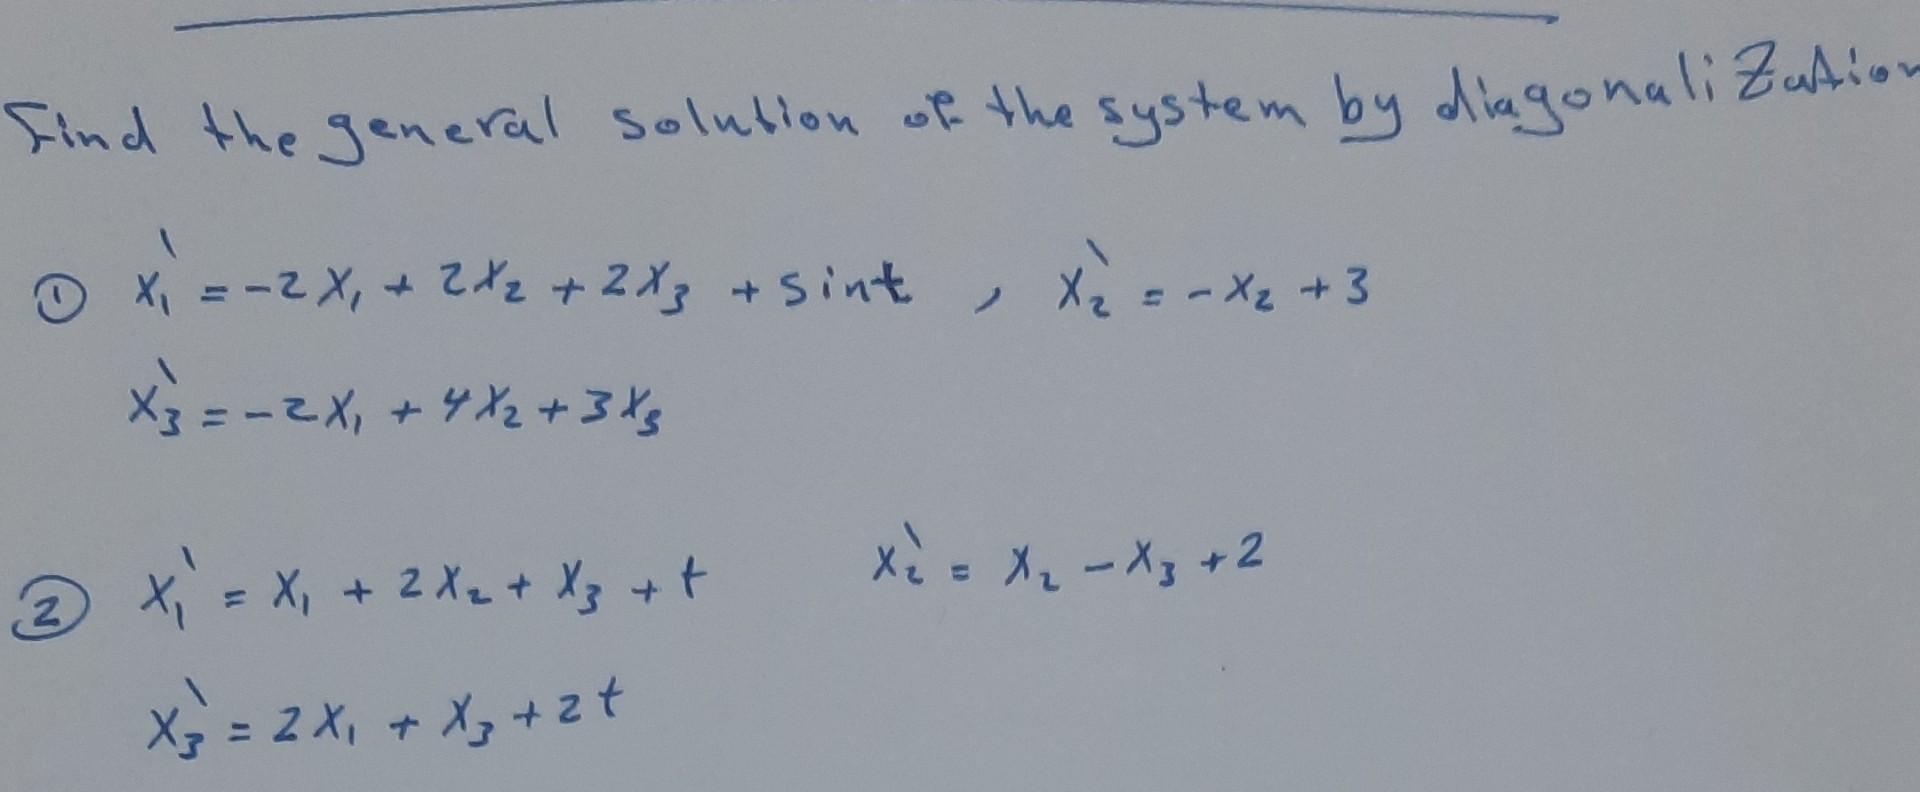 Find the general solution of the system by diagonalization
① x₁' = -2x₁ + 2x₂ + 2x₃ + sint , x₂' = -x₂ + 3
x₃' = -2x₁ + 4x₂ + 3x₃
② x₁' = x₁ + 2x₂ + x₃ + t x₂' = x₂ - x₃ + 2
x₃' = 2x₁ + x₃ + 2t